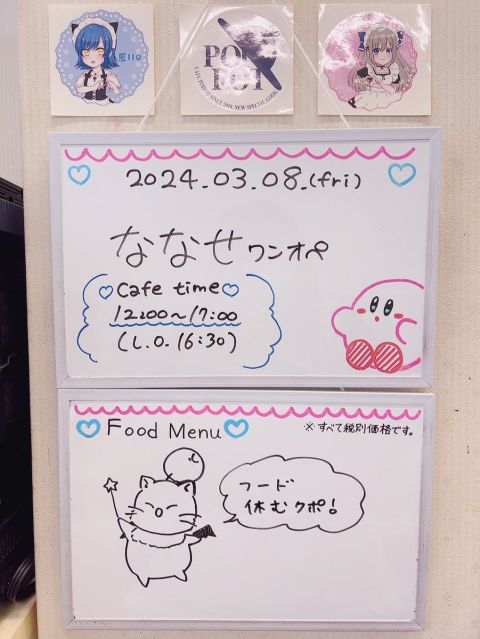 Ello
2024.03.08.(fri)
ななせワンオペ
Cafe time
12:00~17:00
(L.O.16:30)
Food Menu
※すべて税別価格です。
フード
休むクポ!